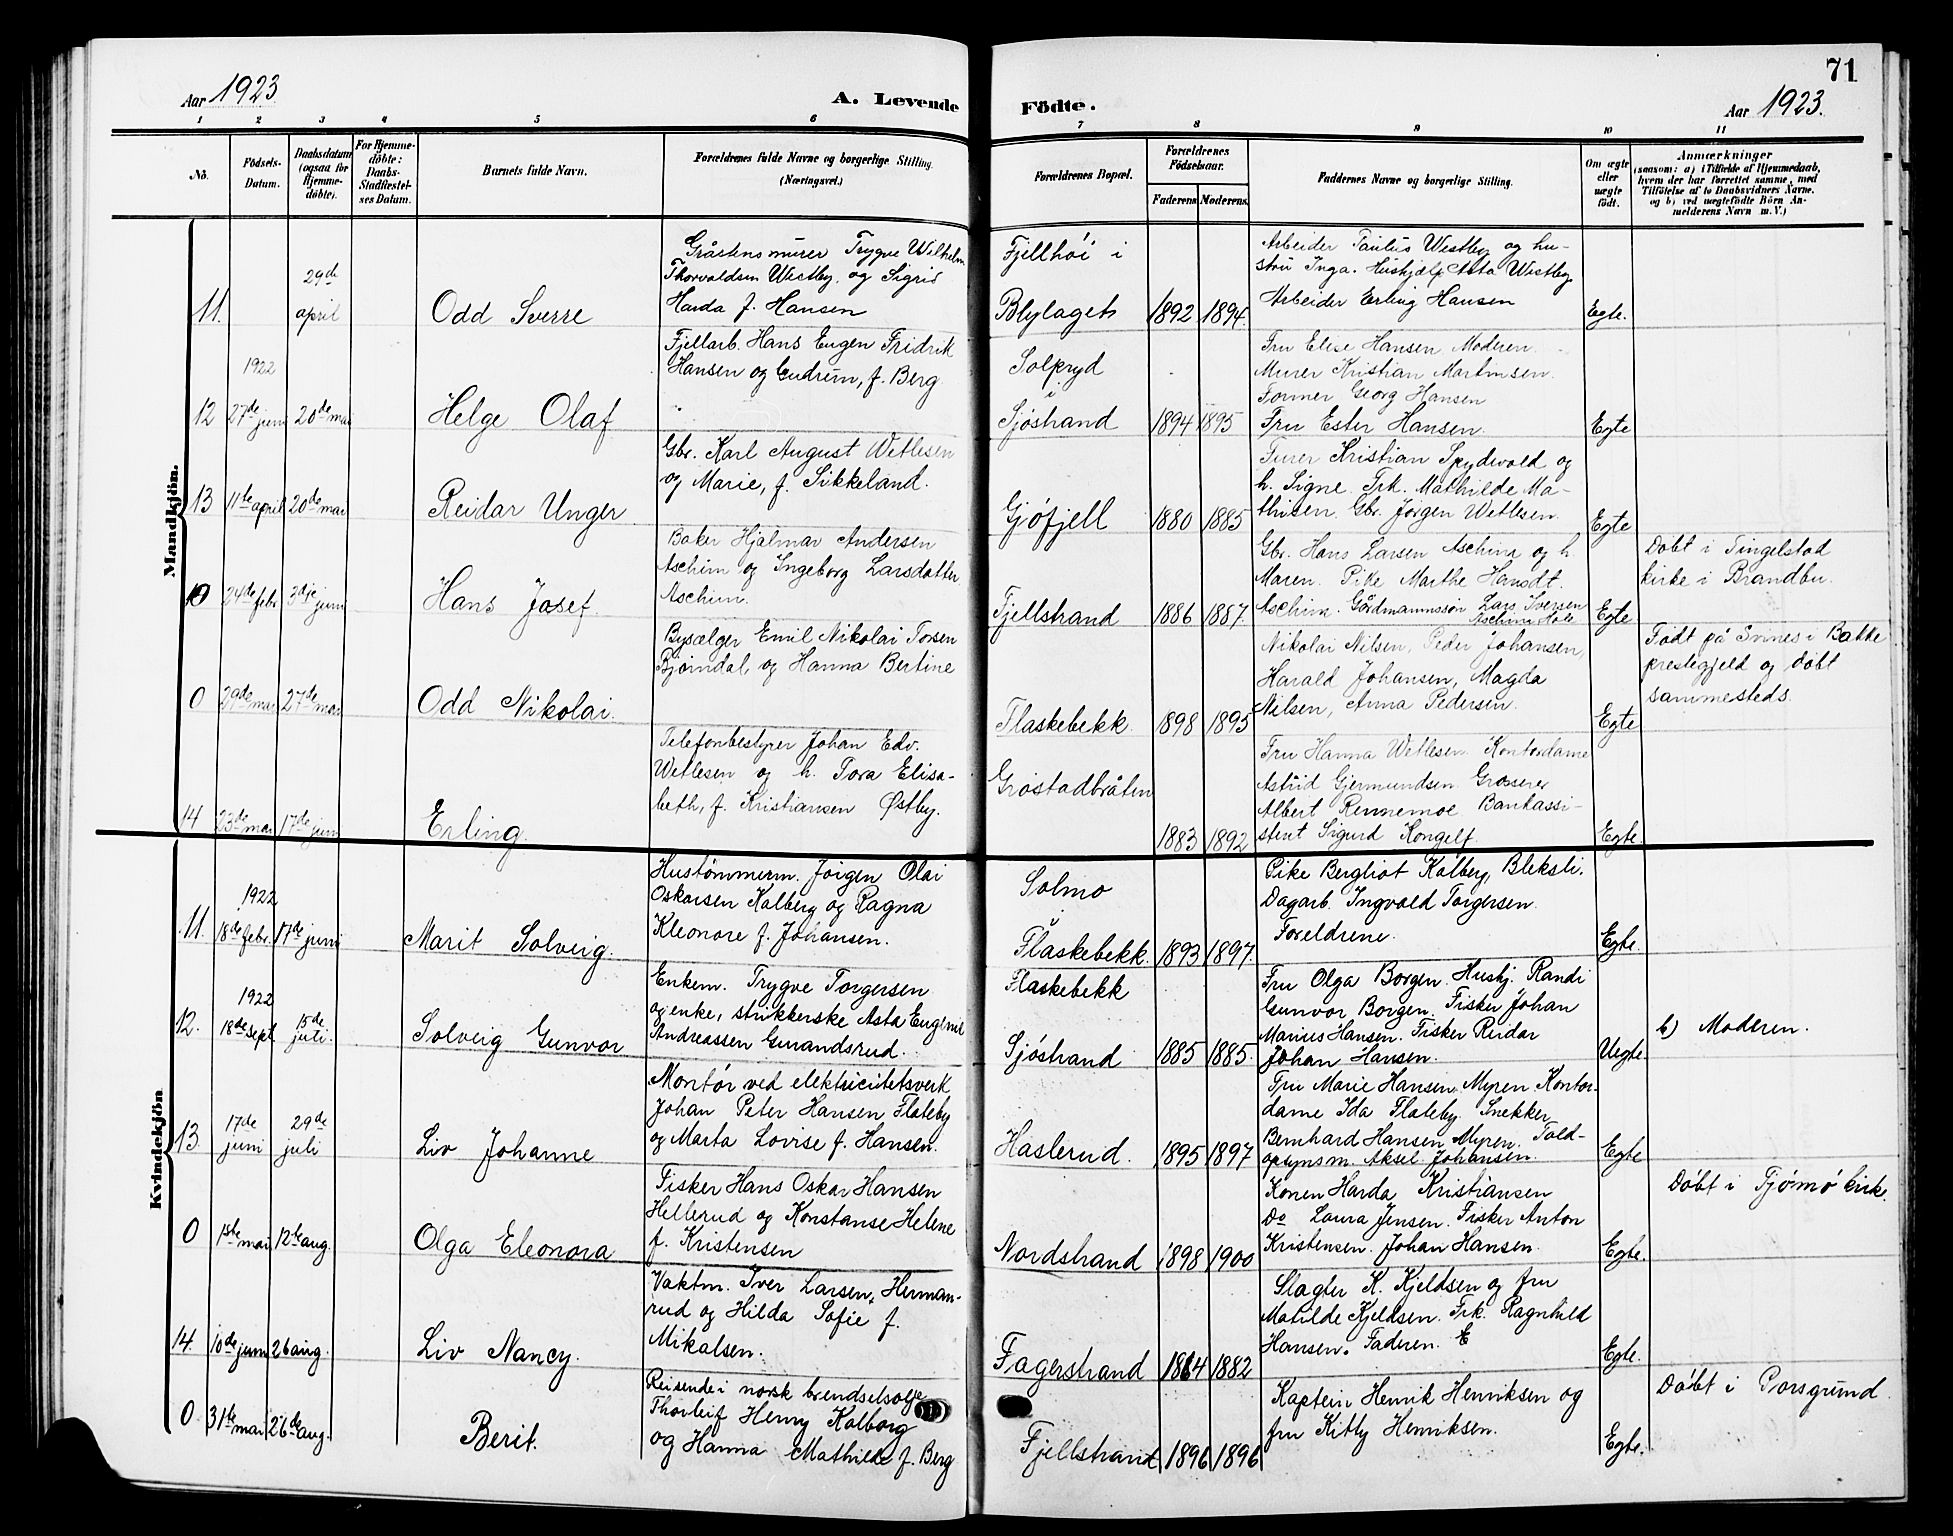 71
Aar 1923.
A. Levende Födte.
Aar 1923.
1 2 3 4 5 6 7 8 9 10 11
No.
Födsels-Datum.
Daabsdatum (ogsaa for Hjemme-döbte).
For Hjemme-döbte: Daabs-Stadfæstel-ses Datum.
Barnets fulde Navn.
Forældrenes fulde Navne og borgerlige Stilling.
(Næringsvei.)
Forældrenes Bopæl.
Forældrenes Födselsaar.
Faderens. Moderens.
Faddernes Navne og borgerlige Stilling.
Om ægte eller uægte födt.
Anmærkninger
(saasom: a) i Tilfælde af Hjemmedaab,
hvem der har forrettet samme, med
Tilföielse af to Daabsvidners Navne,
og b) ved uægtefödte Börn An-
melderens Navn m. V.)
Mandkjön.
11. 29de april Odd Sverre
Gråstensmurer Trygve Wilhelm
Thorvaldsen Westby, og Sigrid
Harda f. Hansen
Fjellhöi i
Blylaget 1892 1894.
Arbeider Paulus Westby og hu-
stru Inga. Hushjælp Asta Westby
Arbeider Erling Hansen
Egte.
12 1922 27de juni 20de mai Helge Olaf
Fjellarb. Hans Eugen Fridrik
Hansen og Gudrun, f. Berg
Solpryd
i
Sjöstrand 1894 1895
Fru Elise Hansen. Moderen.
Murer Kristian Martinsen.
Former Georg Hansen
Fru Ester Hansen.
Egte
13 11te april 20de mai Reidar Unger
Gbr. Karl August Wetlesen
og Marie, f. Sikkeland.
Gjöfjell 1880 1885
Furer Kristian Spydevold og
h. Signe. Frk. Mathilde Ma-
thisen. Gbr. Jörgen Wetlesen.
Egte
0 24de febr. 3dje juni Hans Josef.
Baker Hjalmar Andersen
Aschim og Ingeborg Larsdatter
Aschim.
Fjellstrand 1886 1887.
Gbr. Hans Larsen Aschim og h.
Maren. Pike Marthe Hansdt.
Aschim. Gårdmannssön Lars Iversen
Aschim
Egte
Döbt i Tingelstad
kirke i Brandbu.
0 29de mai 27de mai Odd Nikolai.
Bysælger Emil Nikolai Torsen
Bjöindal og Hanna Bertine
Flaskebekk. 1898 1895
Nikolai Nilsen, Peder Johansen,
Harald Johansen, Magda
Nilsen, Anna Pedersen.
Egte
Födt på Svines i Bakke
prestegjeld og döbt
sammesteds.
14 23de mai 17de juni Erling.
Telefonbestyrer Johan Edv.
Wetlesen og h. Tora Elisa-
beth, f. Kristiansen Østby.
Gröstadbråten
1883 1892
Fru Hanna Wetlesen. Kontordame
Astrid Gjermundsen. Grosserer
Albert Rennemoe Bankassi-
stent Sigurd Kongelf.
Egte.
Kvindekjön
11. 1922 18de febr. 17de juni Marit Solveig.
Hustömmerm. Jörgen Olai
Oskarsen Kolberg og Ragna
Kleonore f. Johansen.
Solmo
Flaskebekk. 1893 1897.
Pike Bergliot Kolberg, Bleksli.
Dagarb. Ingvald Torgersen.
Foreldrene.
Egte.
12. 1922 18de sept. 15de juli. Solveig Gunvor
Enkem. Trygve Torgersen
og enke, strikkerske Asta Eugenie
Andreassen Gunandsrud.
Flaskebekk
Sjöstrand 1885 1885.
Fru Olga Borgen. Hushj. Randi
Gunvor Borgen. Fisker Johan
Marius Hansen. Fisker Reidar
Johan Hansen.
Uegte.
b) Moderen.
13 17de juni 29de juli Liv Johanne
Montör ved elektricitetsverk
Johan Peter Hansen Flateby
og Marta Lovise f. Hansen.
Haslerud. 1895 1897
Fru Marie Hansen Myren Kontor-
dame Ida Flateby. Snekker
Bernhard Hansen Myren. Told-
opsynsm. Aksel Johansen.
Egte
0 1ste mai 12te aug. Olga Eleonora
Fisker Hans Oskar Hansen
Hellerud og Konstanse Helene
f. Kristensen
Nordstrand 1898 1900
Konen Harda Kristiansen
Do Laura Jensen. Fisker Anton
Kristensen. Johan Hansen.
Egte.
Döbt i Tjömö kirke.
14. 10de juni 26 aug. Liv Nancy.
Vaktm. Iver Larsen, Herman-
rud og Hilda Sofie f.
Mikalsen.
Fagerstrand 1884 1882
Slagter K. Kjeldsen og fru
Matilde Kjeldsen. Frk. Ragnhild
Hansen. Faderen. E
Egte.
0 31te mai 26de aug. Berit.
Reisende i norsk brendselsolje
Thorleif Henry Kolborg
og Hanna Mathilde f. Berg
Fjellstrand 1896 1896
Kaptein Henrik Henriksen og
fru Kitty Henriksen.
Egte.
Döbt i Porsgrund